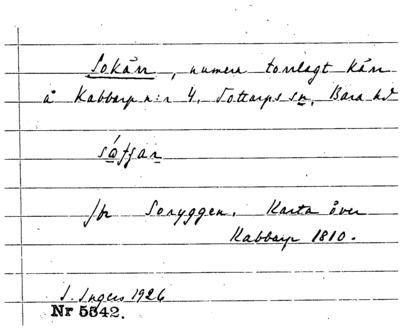 Sokärr, numera torrlagt kärr
å Kabbarp n:r 4, Tottarps sn, Bara hd
jfr Soryggen. Karta över
Kabbarp 1810.
I. Ingers 1926
Nr 5542.